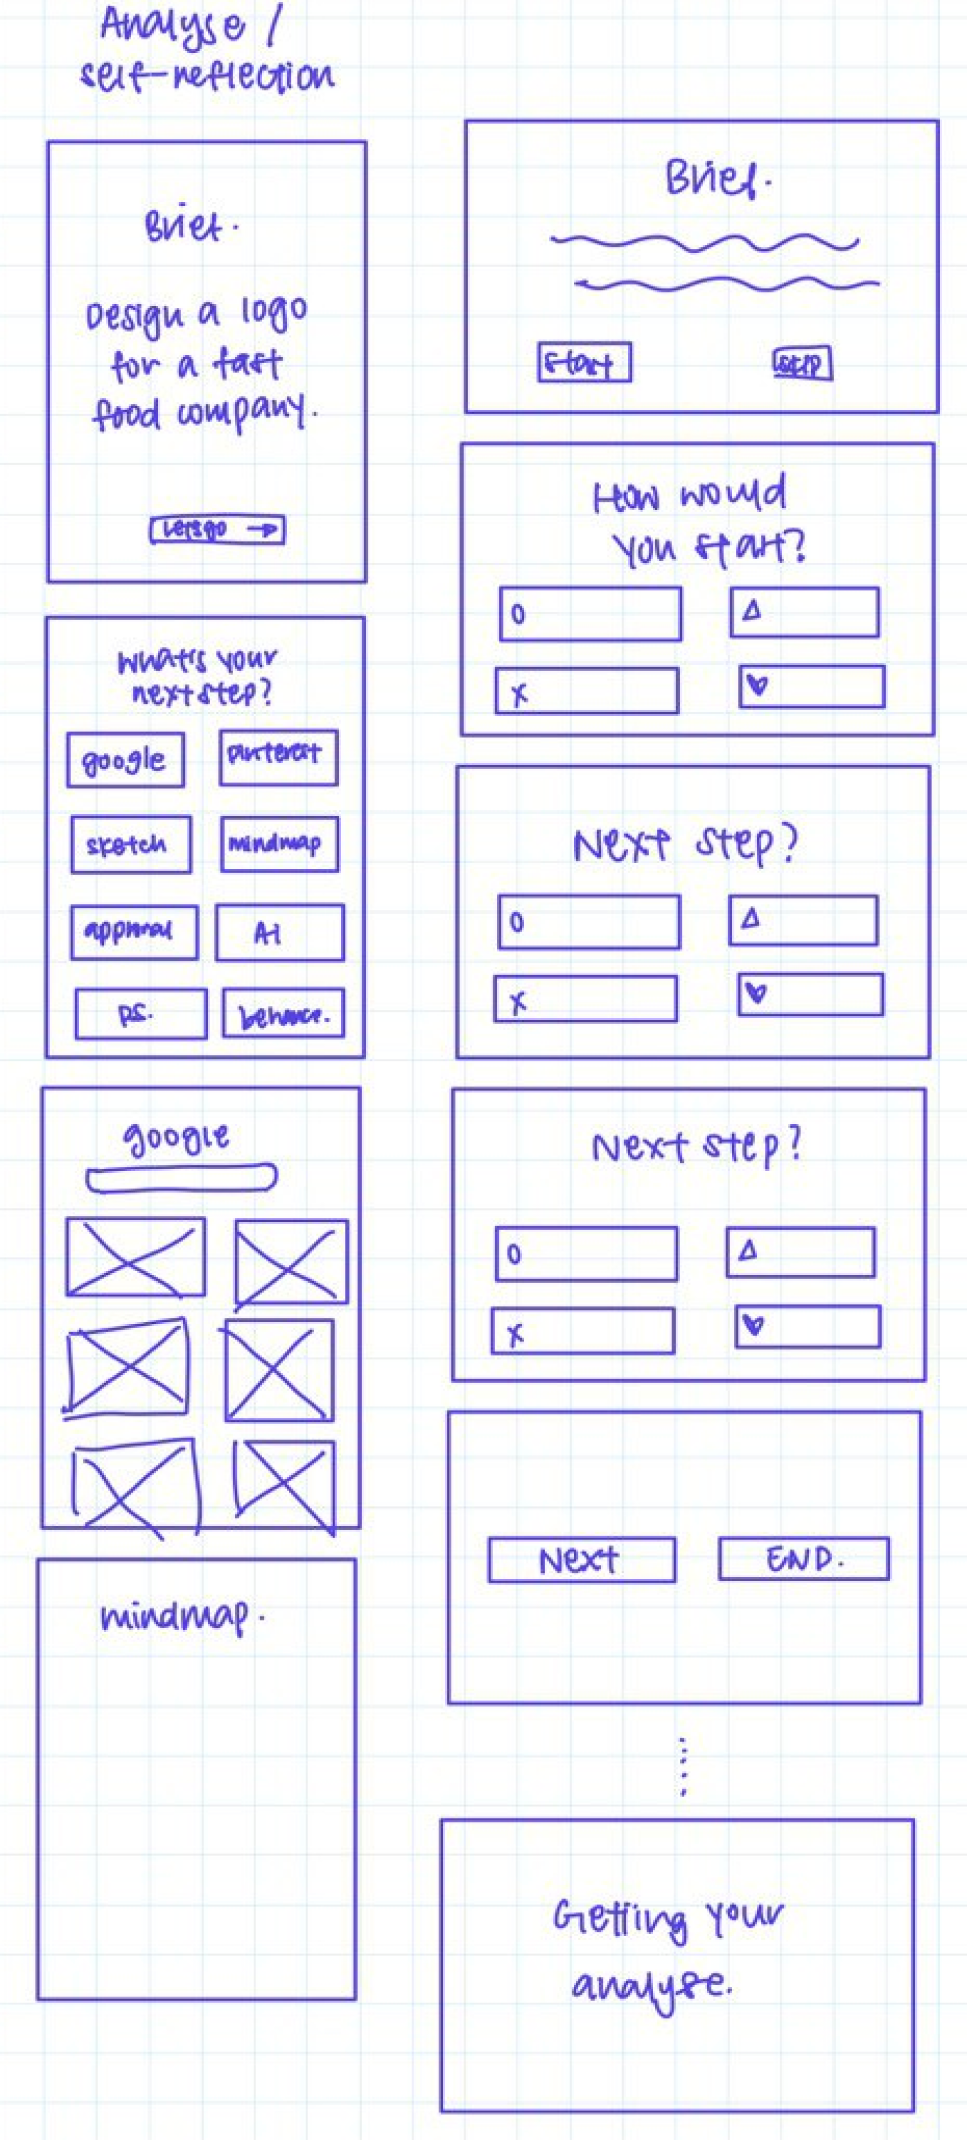 Analyse /
self-reflection
Brief.
Design a logo
for a fast
food company.
Let's go →
What's your
next step?
google
pinterest
sketch
mindmap
approval
AI
PS.
behance.
google
mindmap.
Brief.
start
How would
you start?
O
Δ
X
♥
Next step?
O
Δ
X
♥
Next step?
O
Δ
X
♥
Next
END.
Getting your
analyse.